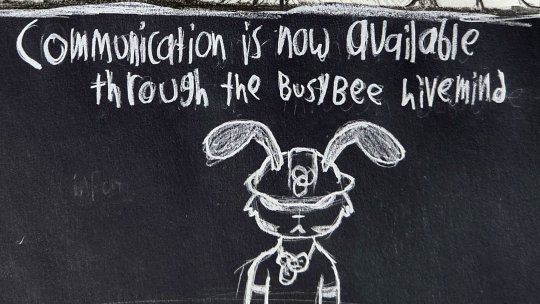 Communication is now available
through the BusyBee hivemind